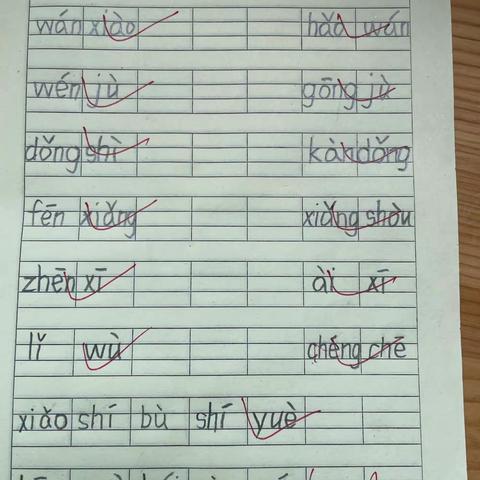 wán xiào hǎo wán
wén jù gōng jù
dǒng shì kàn dǒng
fēn xiǎng xiǎng shòu
zhēn xī ài xī
lǐ wù chéng chē
xiǎo shí bù shí yuè